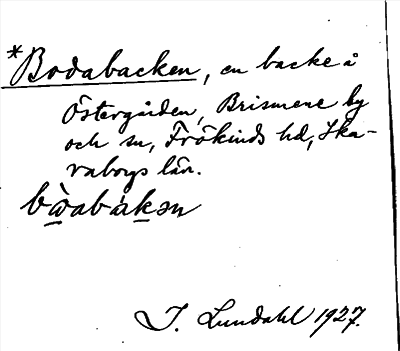 *Bodabacken, en backe å
Östergården, Brismene by
och sn, Frökinds hd, Ska-
raborgs län.
bòdabákən
I. Lundahl 1927.